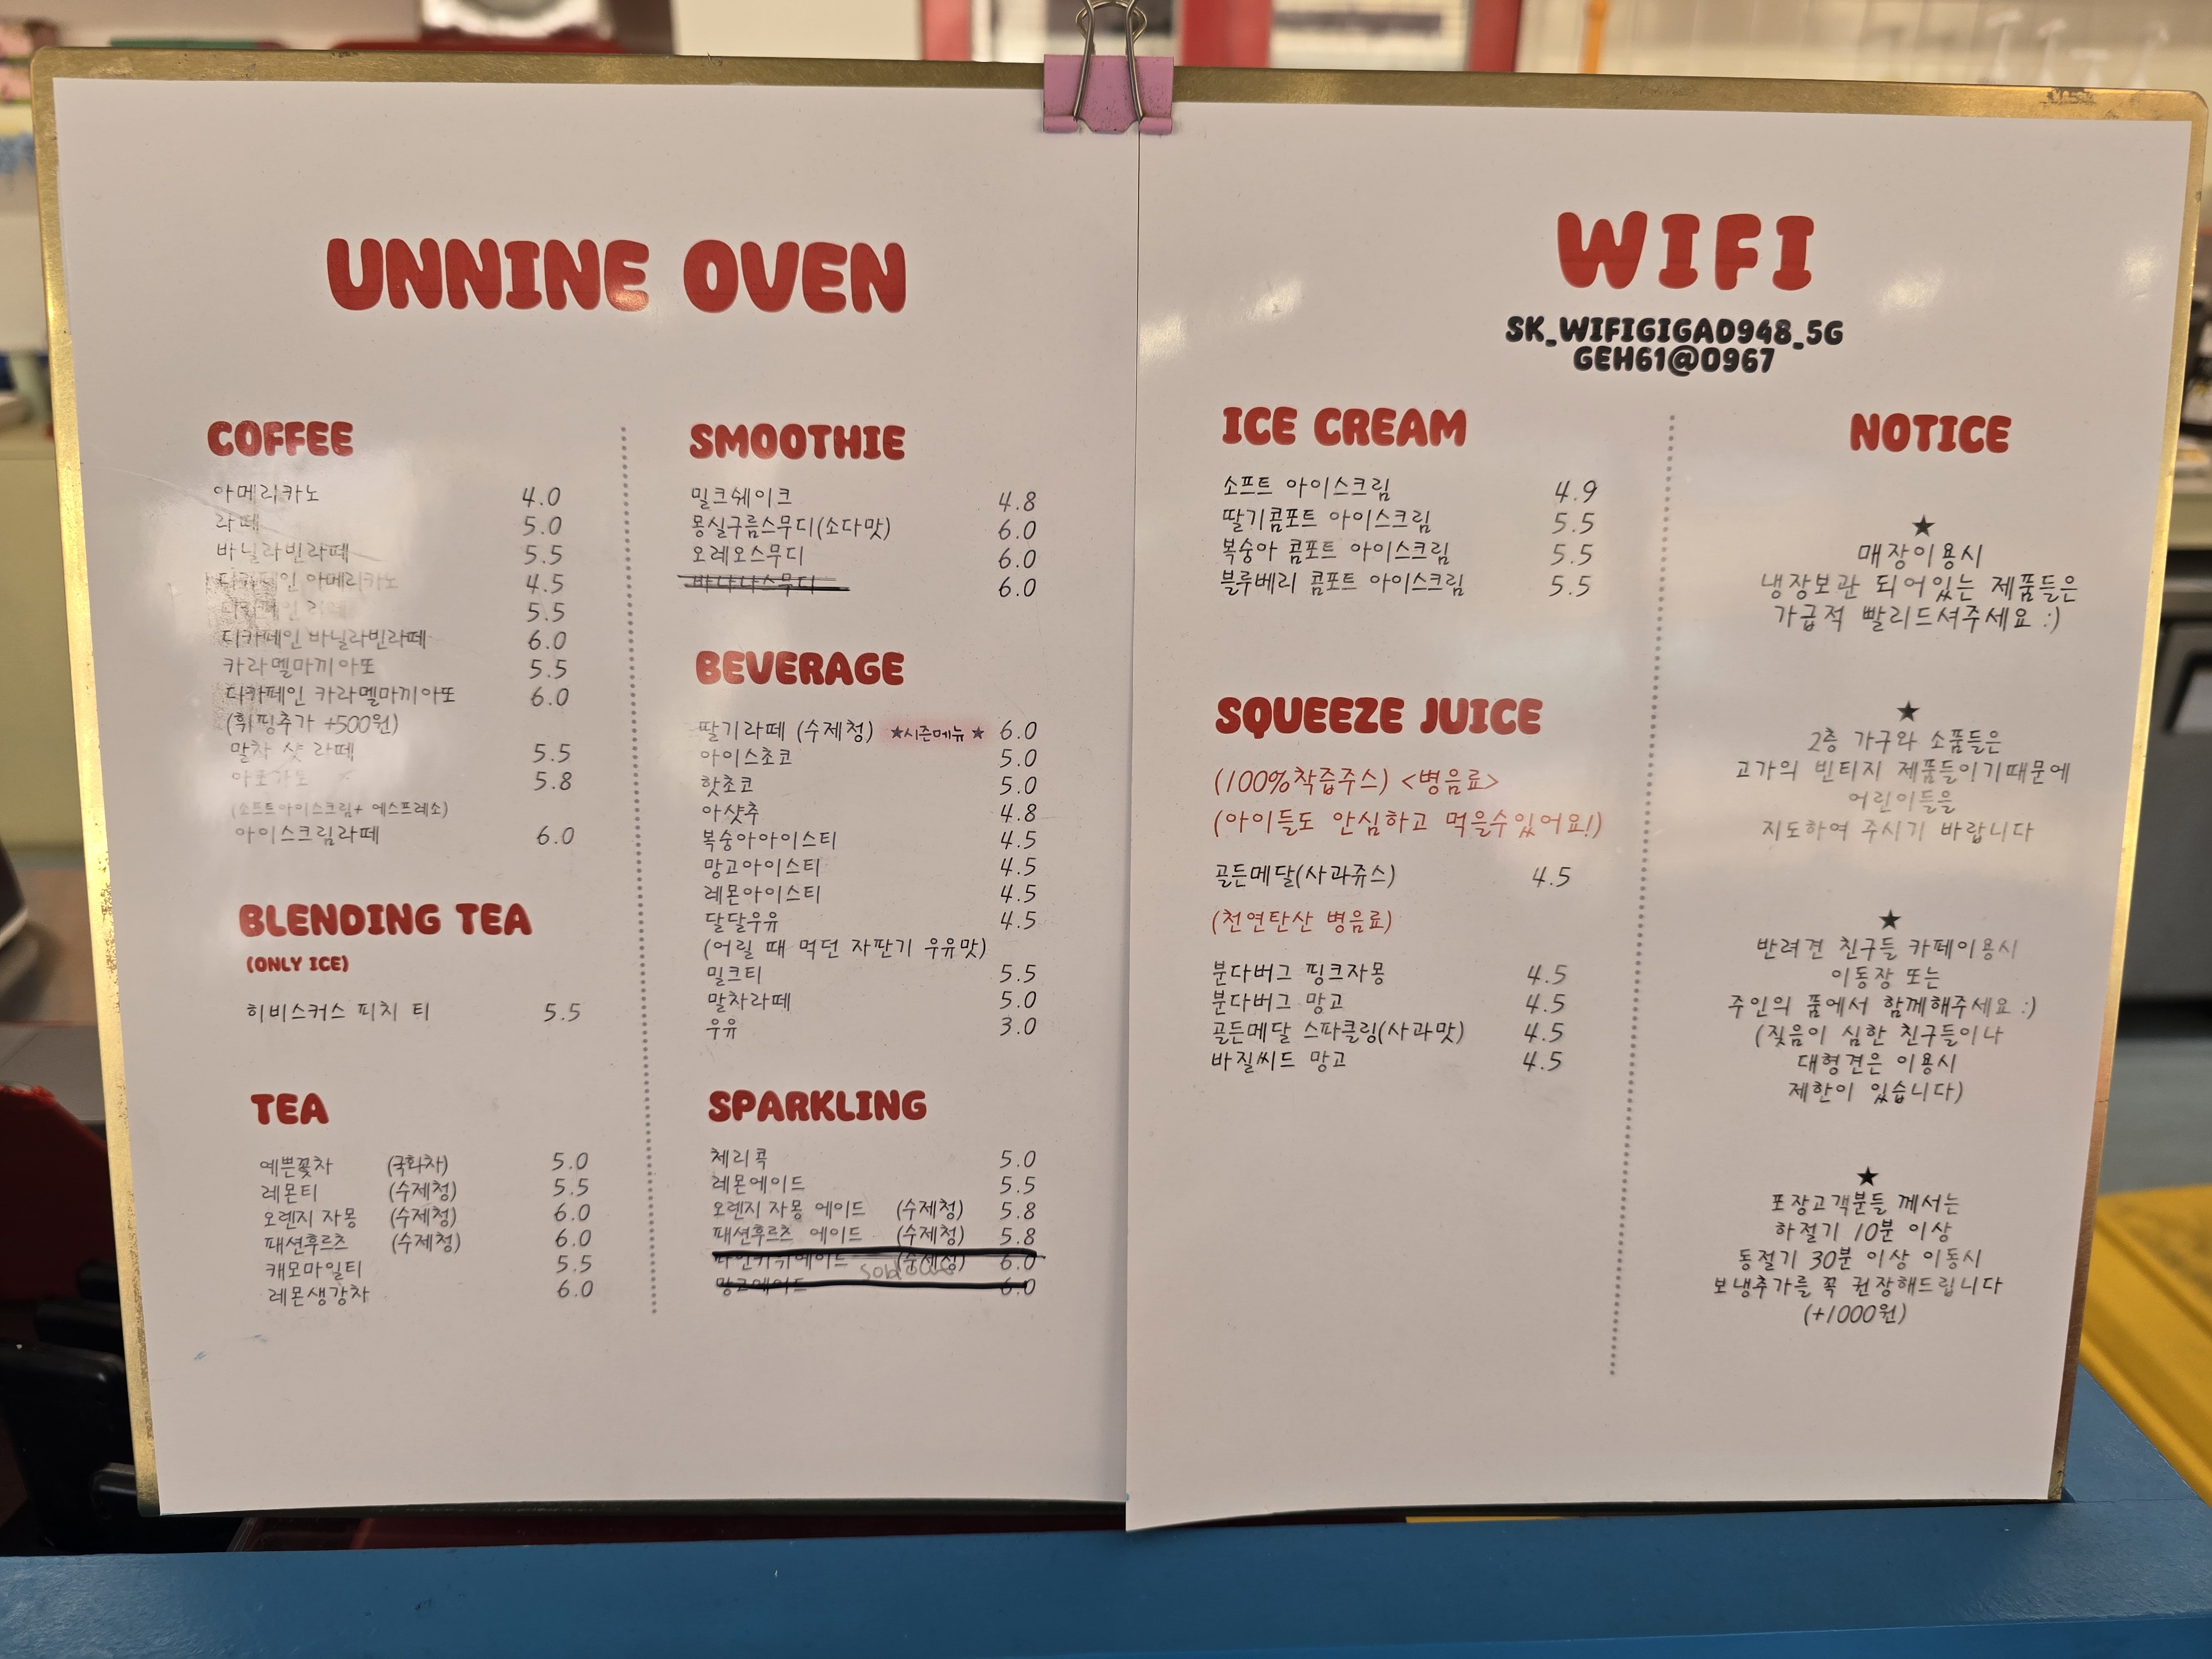 UNNINE OVEN
COFFEE
아메리카노 4.0
라떼 5.0
바닐라빈라떼 5.5
디카페인 아메리카노 4.5
디카페인 라떼 5.5
디카페인 바닐라빈라떼 6.0
카라멜마끼아또 5.5
디카페인 카라멜마끼아또 6.0
(휘핑추가 +500원)
말차 샷 라떼 5.5
아포가토 5.8
(소프트아이스크림+ 에스프레소)
아이스크림라떼 6.0
BLENDING TEA
(ONLY ICE)
히비스커스 피치 티 5.5
TEA
예쁜꽃차 (국화차) 5.0
레몬티 (수제청) 5.5
오렌지 자몽 (수제청) 6.0
패션후르츠 (수제청) 6.0
캐모마일티 5.5
레몬생강차 6.0
SMOOTHIE
밀크쉐이크 4.8
몽실구름스무디(소다맛) 6.0
오레오스무디 6.0
바나나스무디 6.0
BEVERAGE
딸기라떼 (수제청) ★시즌메뉴★ 6.0
아이스초코 5.0
핫초코 5.0
아샷추 4.8
복숭아아이스티 4.5
망고아이스티 4.5
레몬아이스티 4.5
달달우유 4.5
(어릴 때 먹던 자판기 우유맛)
밀크티 5.5
말차라떼 5.0
우유 3.0
SPARKLING
체리콕 5.0
레몬에이드 5.5
오렌지 자몽 에이드 (수제청) 5.8
패션후르츠 에이드 (수제청) 5.8
파인키위에이드 (수제청) 6.0
sold out
망고에이드 6.0
WIFI
SK_WIFIGIGAD948_5G
GEH61@0967
ICE CREAM
소프트 아이스크림 4.9
딸기콤포트 아이스크림 5.5
복숭아 콤포트 아이스크림 5.5
블루베리 콤포트 아이스크림 5.5
SQUEEZE JUICE
(100%착즙주스) <병음료>
(아이들도 안심하고 먹을수있어요!)
골든메달(사과쥬스) 4.5
(천연탄산 병음료)
분다버그 핑크자몽 4.5
분다버그 망고 4.5
골든메달 스파클링(사과맛) 4.5
바질씨드 망고 4.5
NOTICE
★
매장이용시
냉장보관 되어있는 제품들은
가급적 빨리드셔주세요 :)
★
2층 가구와 소품들은
고가의 빈티지 제품들이기때문에
어린이들을
지도하여 주시기 바랍니다
★
반려견 친구들 카페이용시
이동장 또는
주인의 품에서 함께해주세요 :)
(짖음이 심한 친구들이나
대형견은 이용시
제한이 있습니다)
★
포장고객분들 께서는
하절기 10분 이상
동절기 30분 이상 이동시
보냉추가를 꼭 권장해드립니다
(+1000원)